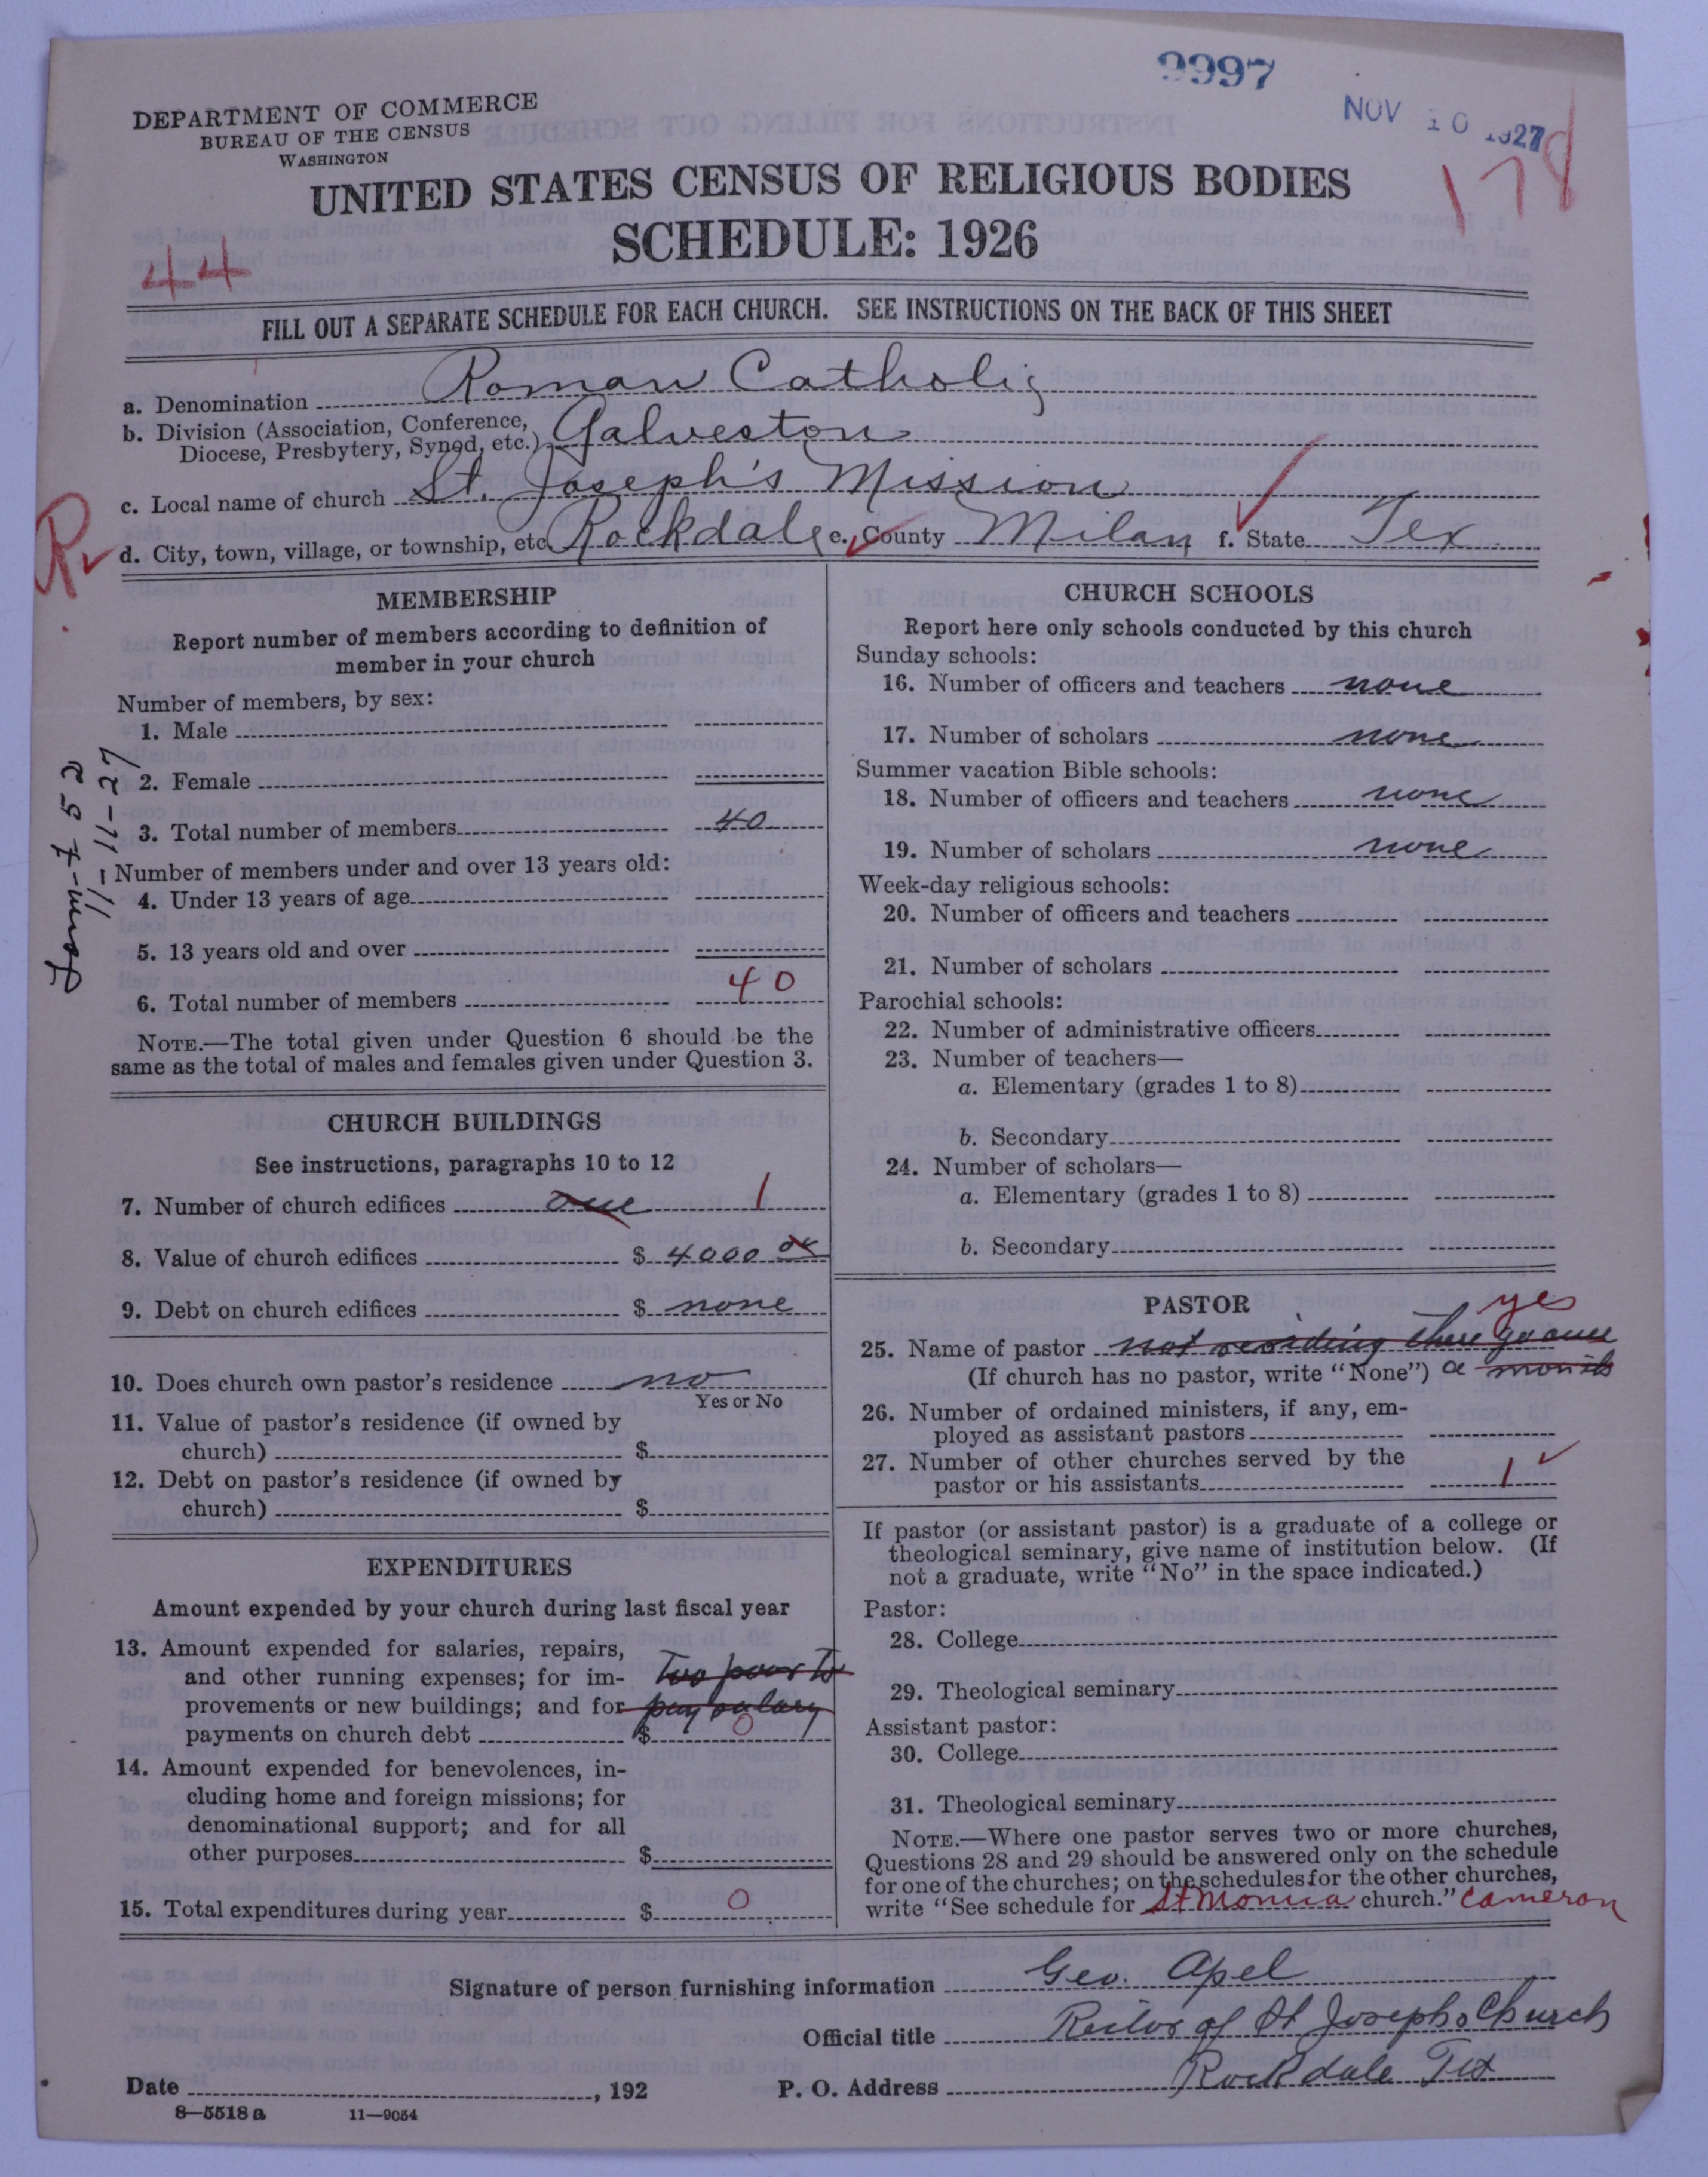 9997
NOV 10 1927
178
DEPARTMENT OF COMMERCE
BUREAU OF THE CENSUS
WASHINGTON
UNITED STATES CENSUS OF RELIGIOUS BODIES
SCHEDULE: 1926
44
FILL OUT A SEPARATE SCHEDULE FOR EACH CHURCH. SEE INSTRUCTIONS ON THE BACK OF THIS SHEET
a. Denomination Roman Catholic
b. Division (Association, Conference, Diocese, Presbytery, Synod, etc.) Galveston
c. Local name of church St. Joseph's Mission
R
d. City, town, village, or township, etc. Rockdale e. County Milan f. State Tex
MEMBERSHIP
Report number of members according to definition of
member in your church
Number of members, by sex:
1. Male
2. Female
3. Total number of members 40
Number of members under and over 13 years old:
4. Under 13 years of age
5. 13 years old and over
6. Total number of members 40
NOTE.—The total given under Question 6 should be the
same as the total of males and females given under Question 3.
11-11-27
CHURCH BUILDINGS
See instructions, paragraphs 10 to 12
7. Number of church edifices one 1
8. Value of church edifices $ 4000 00
9. Debt on church edifices $ none
10. Does church own pastor's residence no
Yes or No
11. Value of pastor's residence (if owned by
church) $
12. Debt on pastor's residence (if owned by
church) $
EXPENDITURES
Amount expended by your church during last fiscal year
13. Amount expended for salaries, repairs,
and other running expenses; for im- Too poor to
provements or new buildings; and for pay salary
payments on church debt $ 0
14. Amount expended for benevolences, in-
cluding home and foreign missions; for
denominational support; and for all
other purposes $
15. Total expenditures during year $ 0
CHURCH SCHOOLS
Report here only schools conducted by this church
Sunday schools:
16. Number of officers and teachers none
17. Number of scholars none
Summer vacation Bible schools:
18. Number of officers and teachers none
19. Number of scholars none
Week-day religious schools:
20. Number of officers and teachers
21. Number of scholars
Parochial schools:
22. Number of administrative officers
23. Number of teachers—
a. Elementary (grades 1 to 8)
b. Secondary
24. Number of scholars—
a. Elementary (grades 1 to 8)
b. Secondary
PASTOR
yes
25. Name of pastor not residing there go once
(If church has no pastor, write "None") a month
26. Number of ordained ministers, if any, em-
ployed as assistant pastors
27. Number of other churches served by the
pastor or his assistants 1
If pastor (or assistant pastor) is a graduate of a college or
theological seminary, give name of institution below. (If
not a graduate, write "No" in the space indicated.)
Pastor:
28. College
29. Theological seminary
Assistant pastor:
30. College
31. Theological seminary
NOTE.—Where one pastor serves two or more churches,
Questions 28 and 29 should be answered only on the schedule
for one of the churches; on the schedules for the other churches,
write "See schedule for St Monica church." Cameron
Signature of person furnishing information Geo. Apel
Official title Rector of St Josephs Church
Date , 192 P. O. Address Rockdale Tex
8—5518 a 11—9054